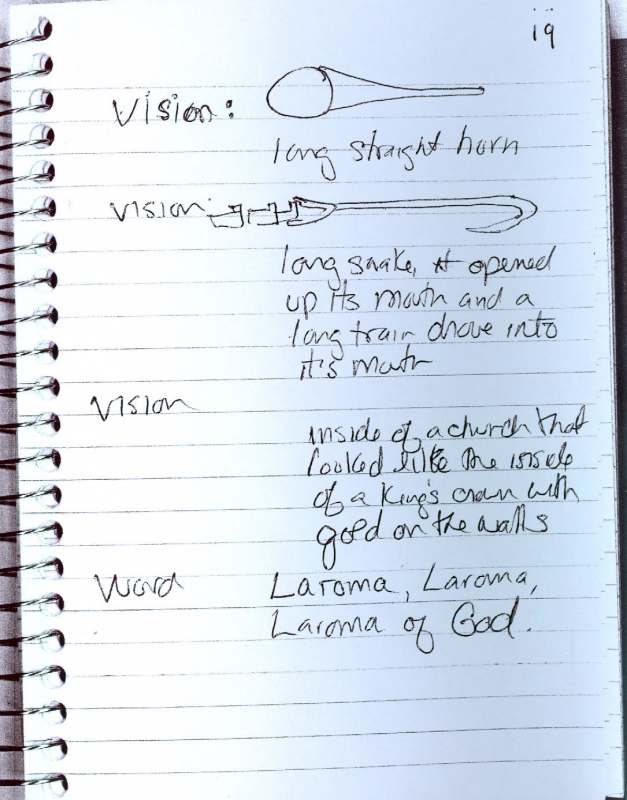 19
Vision:
long straight horn
Vision:
long snake, it opened
up its mouth and a
long train drove into
it's mouth
Vision
inside of a church that
looked like the inside
of a King's crown with
gold on the walls
Word Laroma, Laroma,
Laroma of God.